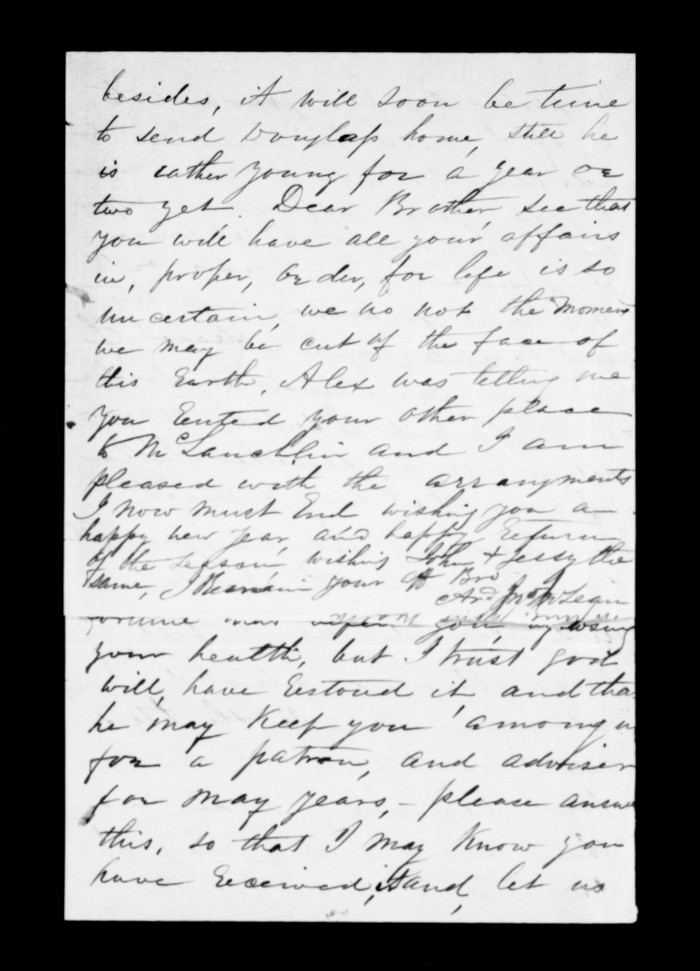 besides, it will soon be time
to send Douglass home, still he
is rather young for a year or
two yet. Dear Brother see that
you will have all your affairs
in, proper, order, for life is so
uncertain, we no not the moment
we may be cut of the face of
this Earth, Alex was telling me
you Rented your other place
to McLauchlin and I am
pleased with the arrangments
I now must End wishing you a
happy new year, and happy Return
of the season, wishing John + Jessy the
same, I Remain your aff Bro
Ard Jn McLean
your health, but I trust god
will, have Restored it and tha
he may Keep you among u
for a patron, and adviser
for may years, - please answ
this, so that I may Know you
have Received, it and, let us